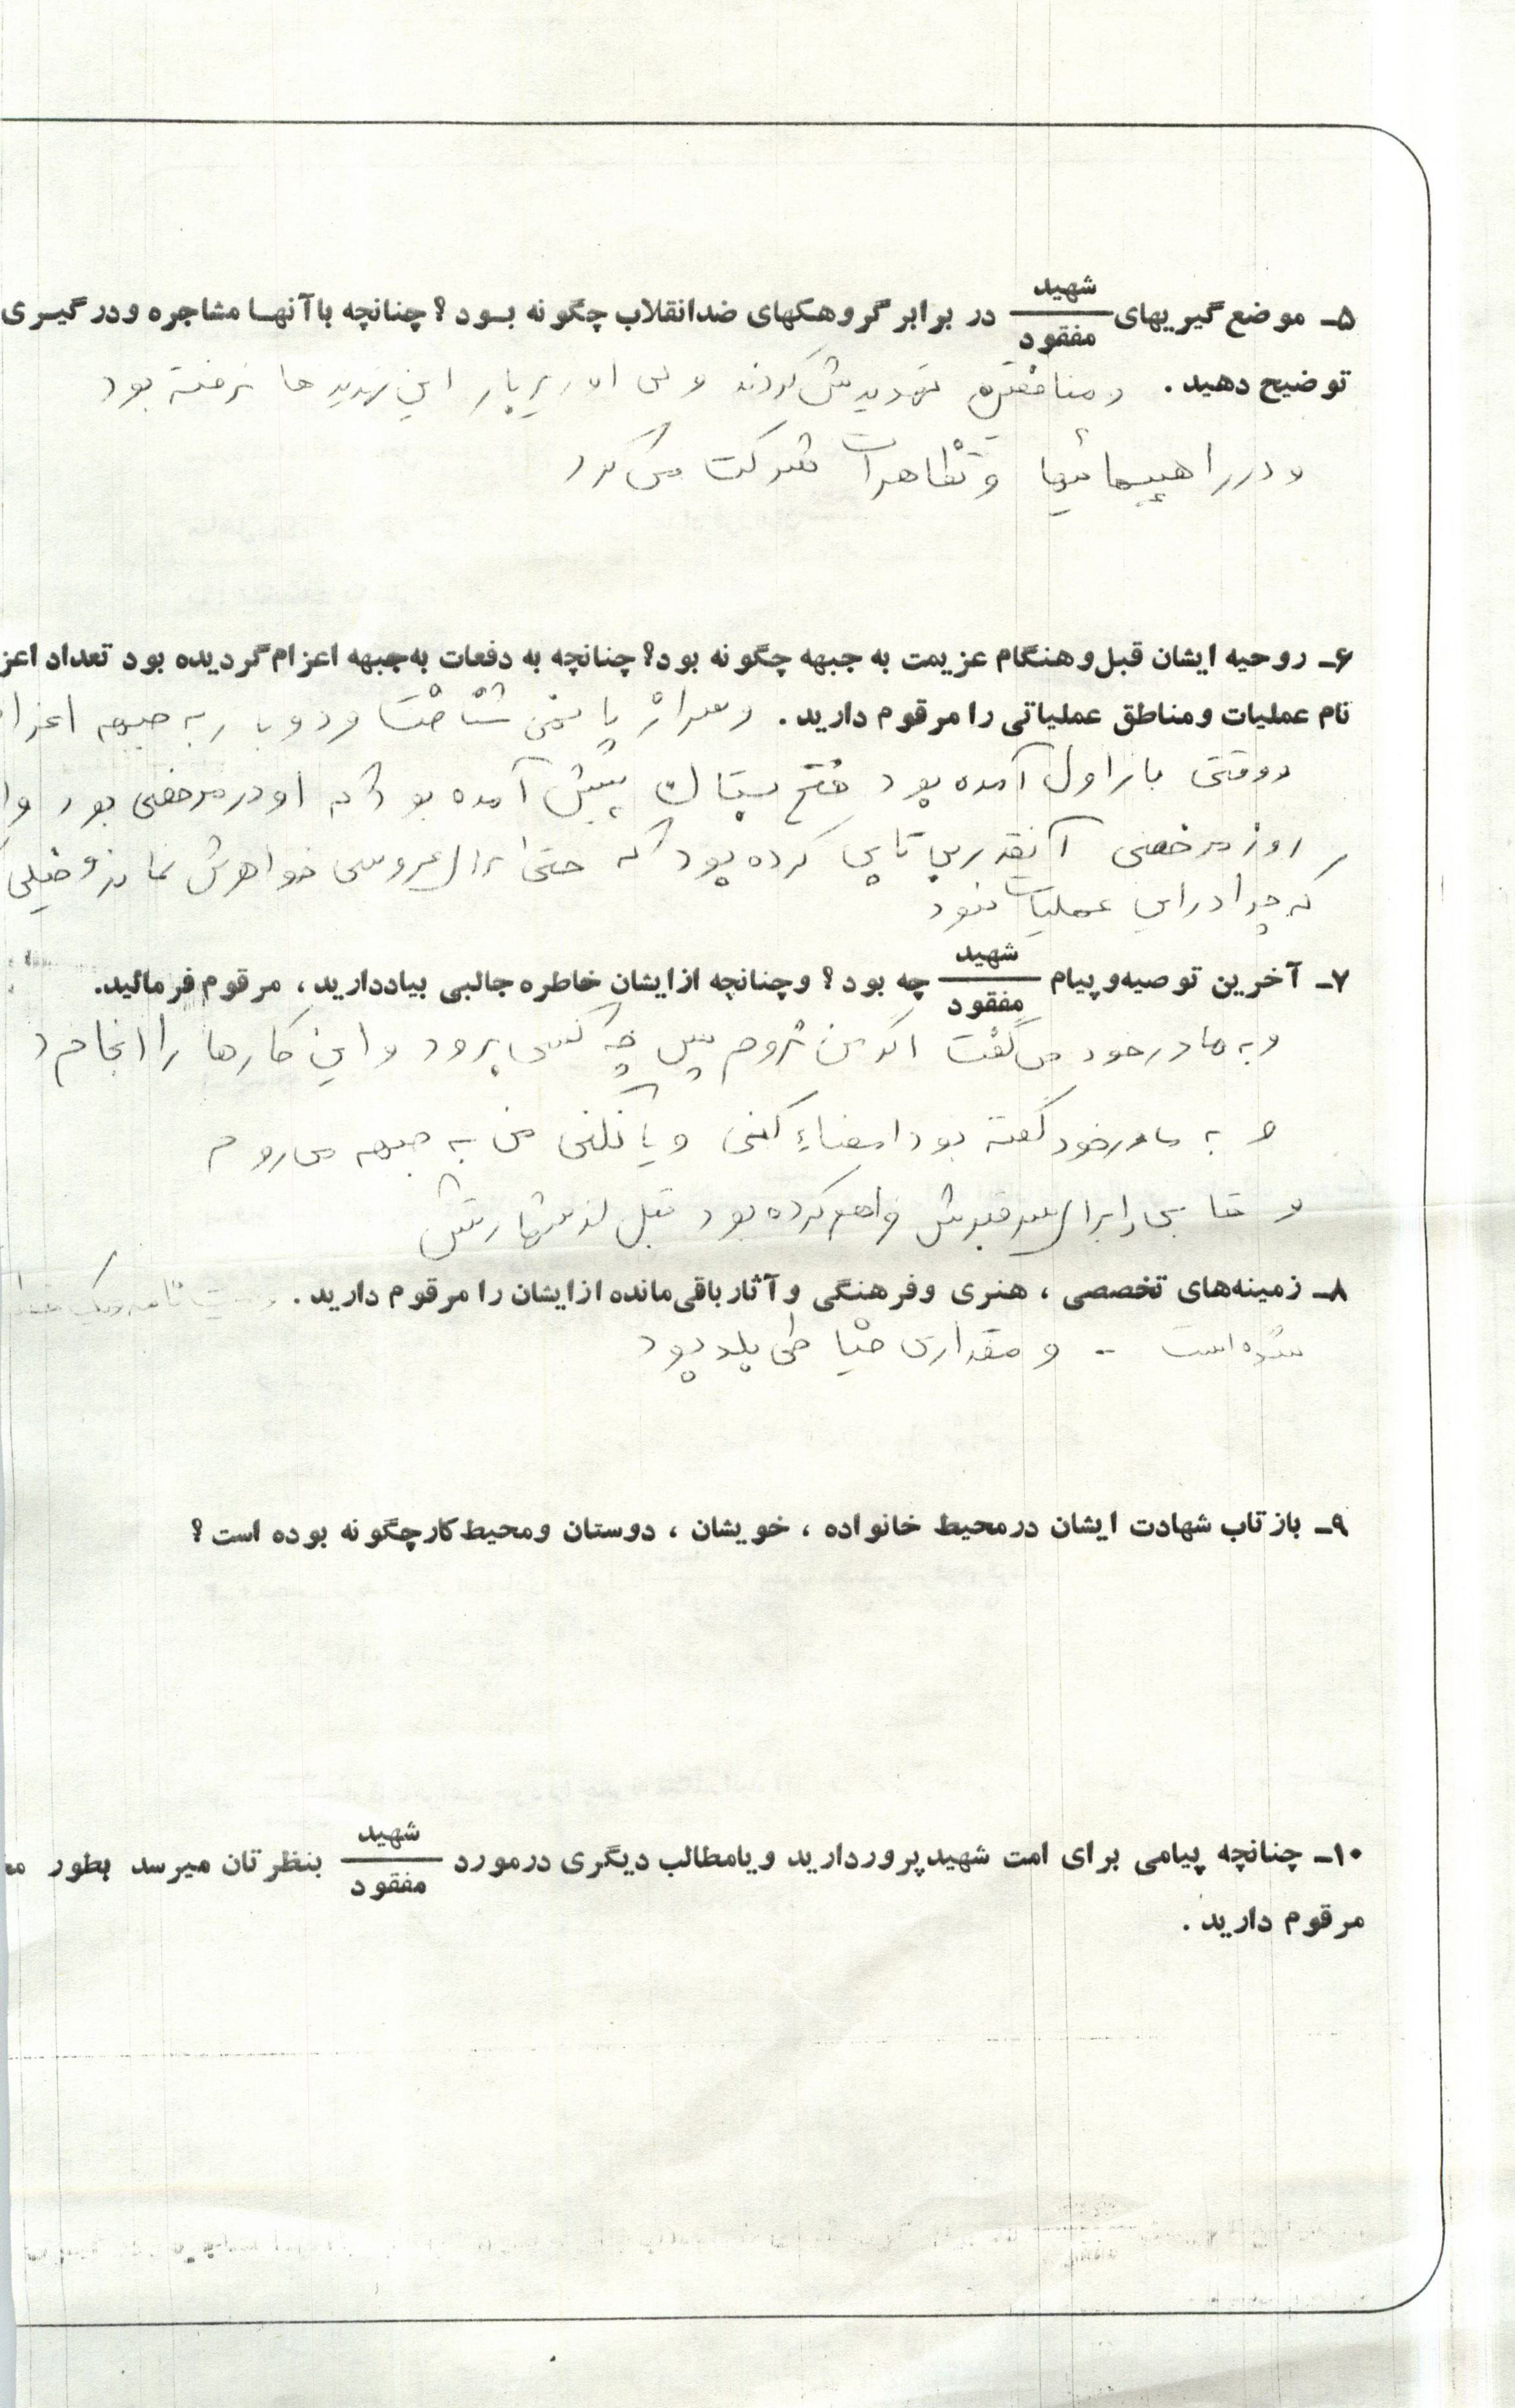 ۵ـ موضع گیریهای شهید/مفقود در برابر گروهکهای ضدانقلاب چگونه بود؟ چنانچه باآنها مشاجره ودرگیری
توضیح دهید. و منافقین تهدیدش کردند ولی او زیر بار این تهدیدها نرفته بود
و در راهپیمائیها و تظاهرات شرکت می کرد
۶ـ روحیه ایشان قبل وهنگام عزیمت به جبهه چگونه بود؟ چنانچه به دفعات به جبهه اعزام گردیده بود تعداد اعز
نام عملیات ومناطق عملیاتی را مرقوم دارید. و سر از پا نمی شناخت و دو بار به جبهه اعزا
و وقتی بار اول آمده بود فتح بستان پیش آمده بود که او در مرخصی بود وا
روز مرخصی آنقدر بی تابی کرده بود که حتی برای عروسی خواهرش نماند و خیلی
که چرا در این عملیات نبود
۷ـ آخرین توصیه وپیام شهید/مفقود چه بود؟ وچنانچه ازایشان خاطره جالبی بیاددارید، مرقوم فرمائید.
و به مادر خود می گفت اگر من نروم پس چه کسی برود و این کارها را انجام د
و به مادر خود گفته بود امضاء کنی و یا نکنی من به جبهه می روم
و برای سر قبرش فراهم کرده بود قبل از شهادتش
۸ـ زمینه های تخصصی، هنری وفرهنگی وآثار باقی مانده ازایشان را مرقوم دارید. وصیت نامه ویک
شده است - و مقداری خیاطی بلد بود
۹ـ بازتاب شهادت ایشان درمحیط خانواده، خویشان، دوستان ومحیط کارچگونه بوده است؟
۱۰ـ چنانچه پیامی برای امت شهیدپرور دارید ویامطالب دیگری درمورد شهید/مفقود بنظرتان میرسد بطور
مرقوم دارید.